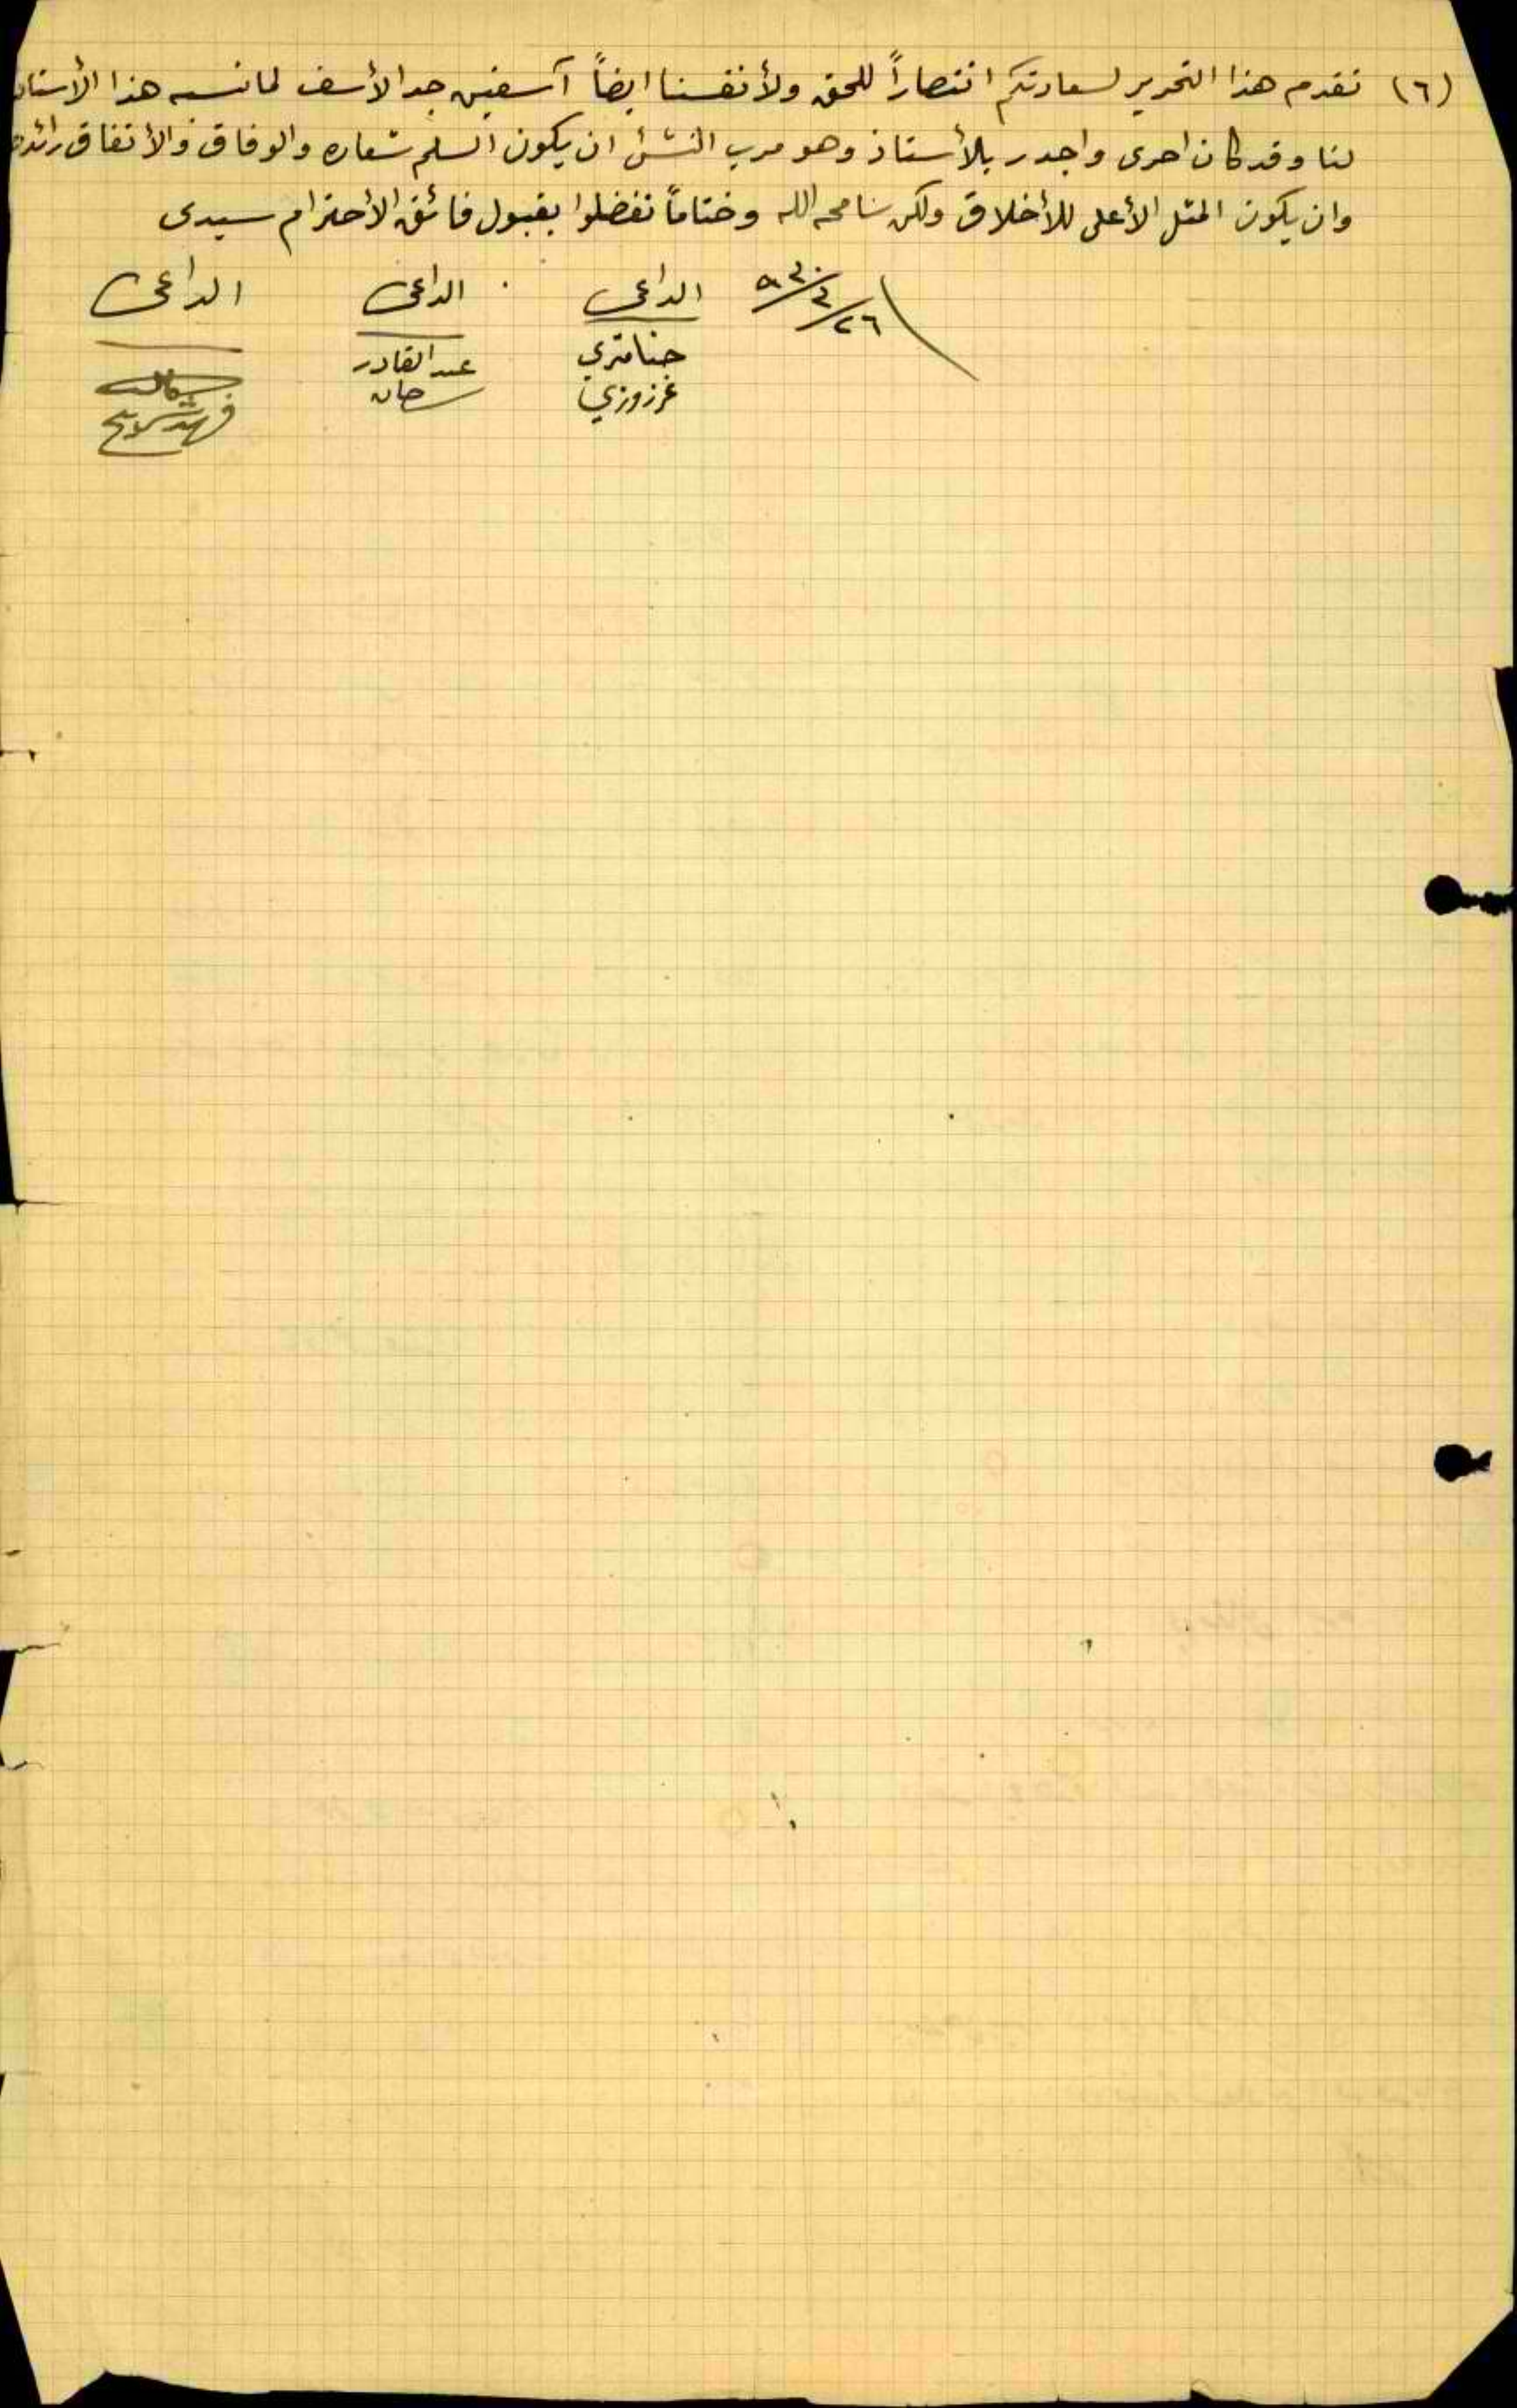 (٦) نقدم هذا التحرير لسعادتكم انتصاراً للحق ولأنفسنا ايضاً آسفين جد الأسف لما نسبه هذا الأستاذ
لنا وقد كان احرى واجدر بالأستاذ وهو مرب النشئ ان يكون السلم شعاره والوفاق والأتفاق رائده
وان يكون المثل الأعلى للأخلاق ولكن سامحه الله وختاماً تفضلوا بقبول فائق الأحترام سيدى
الداعى الداعى الداعى
حنا متري عبد القادر